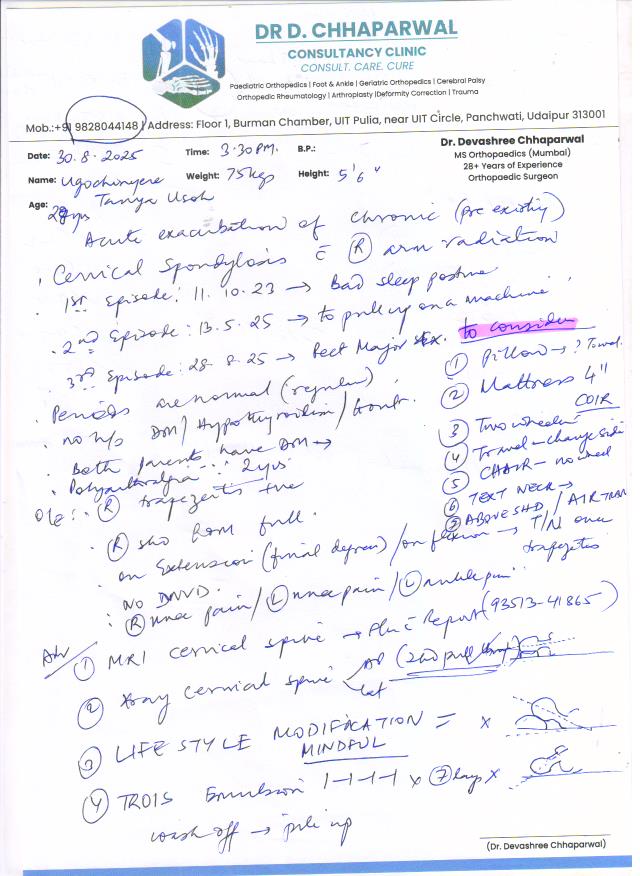 DR D. CHHAPARWAL
CONSULTANCY CLINIC
CONSULT. CARE. CURE
Paediatric Orthopedics | Foot & Ankle | Geriatric Orthopedics | Cerebral Palsy
Orthopedic Rheumatology | Arthroplasty |Deformity Correction | Trauma
Mob.:+91 9828044148 | Address: Floor 1, Burman Chamber, UIT Pulia, near UIT Circle, Panchwati, Udaipur 313001
Dr. Devashree Chhaparwal
MS Orthopaedics (Mumbai)
28+ Years of Experience
Orthopaedic Surgeon
Date: 30.8.2025 Time: 3.30PM. B.P.:
Name: Ugochinyere Weight: 75kgs Height: 5'6"
Tanya Usoh
Age: 28yrs
Acute exacerbation of chronic (pre existing)
Cervical Spondylosis c̄ (R) arm radiation
1st Episode: 11.10.23 → Bad sleep posture
2nd Episode: 13.5.25 → to pull up on a machine
3rd Episode: 28.8.25 → Pect Major
Periods are normal (regular)
no h/o DM / Hypothyroidism /
Both parents have DM →
Polyarthralgia 2yrs
to consider
① Pillow → ? Towel
② Mattress 4"
COIR
③ Two wheeler
④ Travel - change side
⑤ CHAIR - no wheel
⑥ TEXT NECK →
⑦ ABOVE SHD / AIR TRAV
O/e: (R) trapezeits +ve
(R) sho ROM full.
on Extension (final degree) / on flexion → T/N over
trapezeits
NO DNVD.
(R) knee pain / (L) knee pain / (L) ankle pain
Adv
① MRI cervical spine → Report (93513-41865)
② Xray cervical spine AP
Lat
③ LIFE STYLE MODIFICATION = x
MINDFUL
④ TROIS Emulsion 1-1-1-1 x 7 days x
wash off →
(Dr. Devashree Chhaparwal)